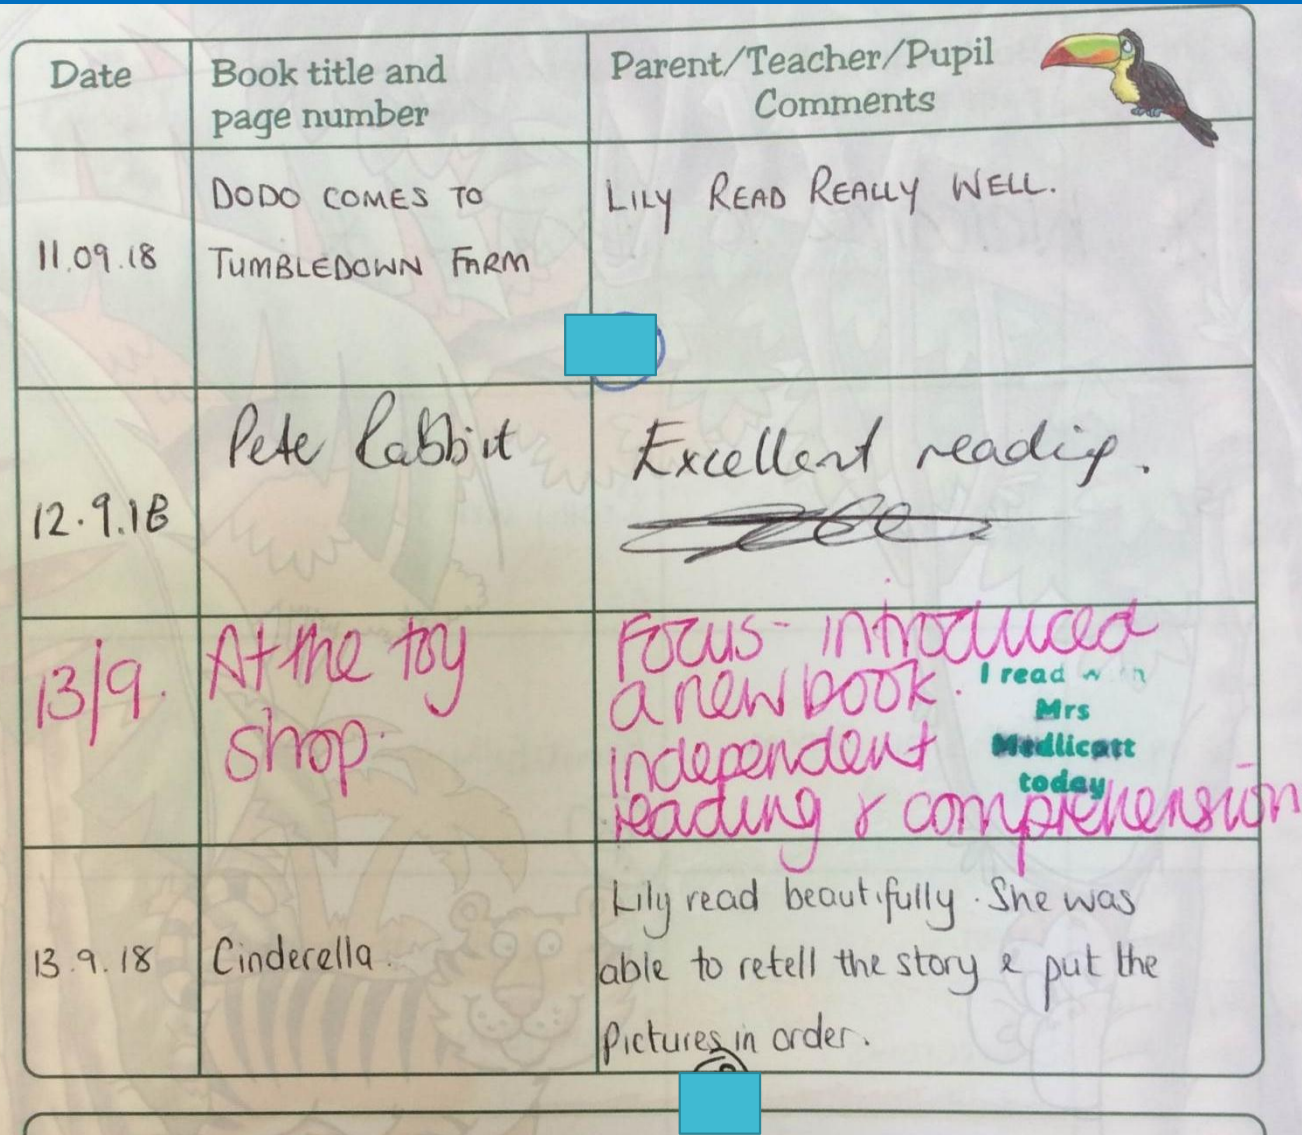 Date
Book title and
page number
Parent/Teacher/Pupil
Comments
11.09.18
DODO COMES TO
TUMBLEDOWN FARM
LILY READ REALLY WELL.
12.9.18
Pete Rabbit
Excellent reading.
13/9.
At the toy
shop.
Focus - introduced
a new book.
independent
reading & comprehension
I read with
Mrs
Medlicott
today
13.9.18
Cinderella.
Lily read beautifully. She was
able to retell the story & put the
Pictures in order.